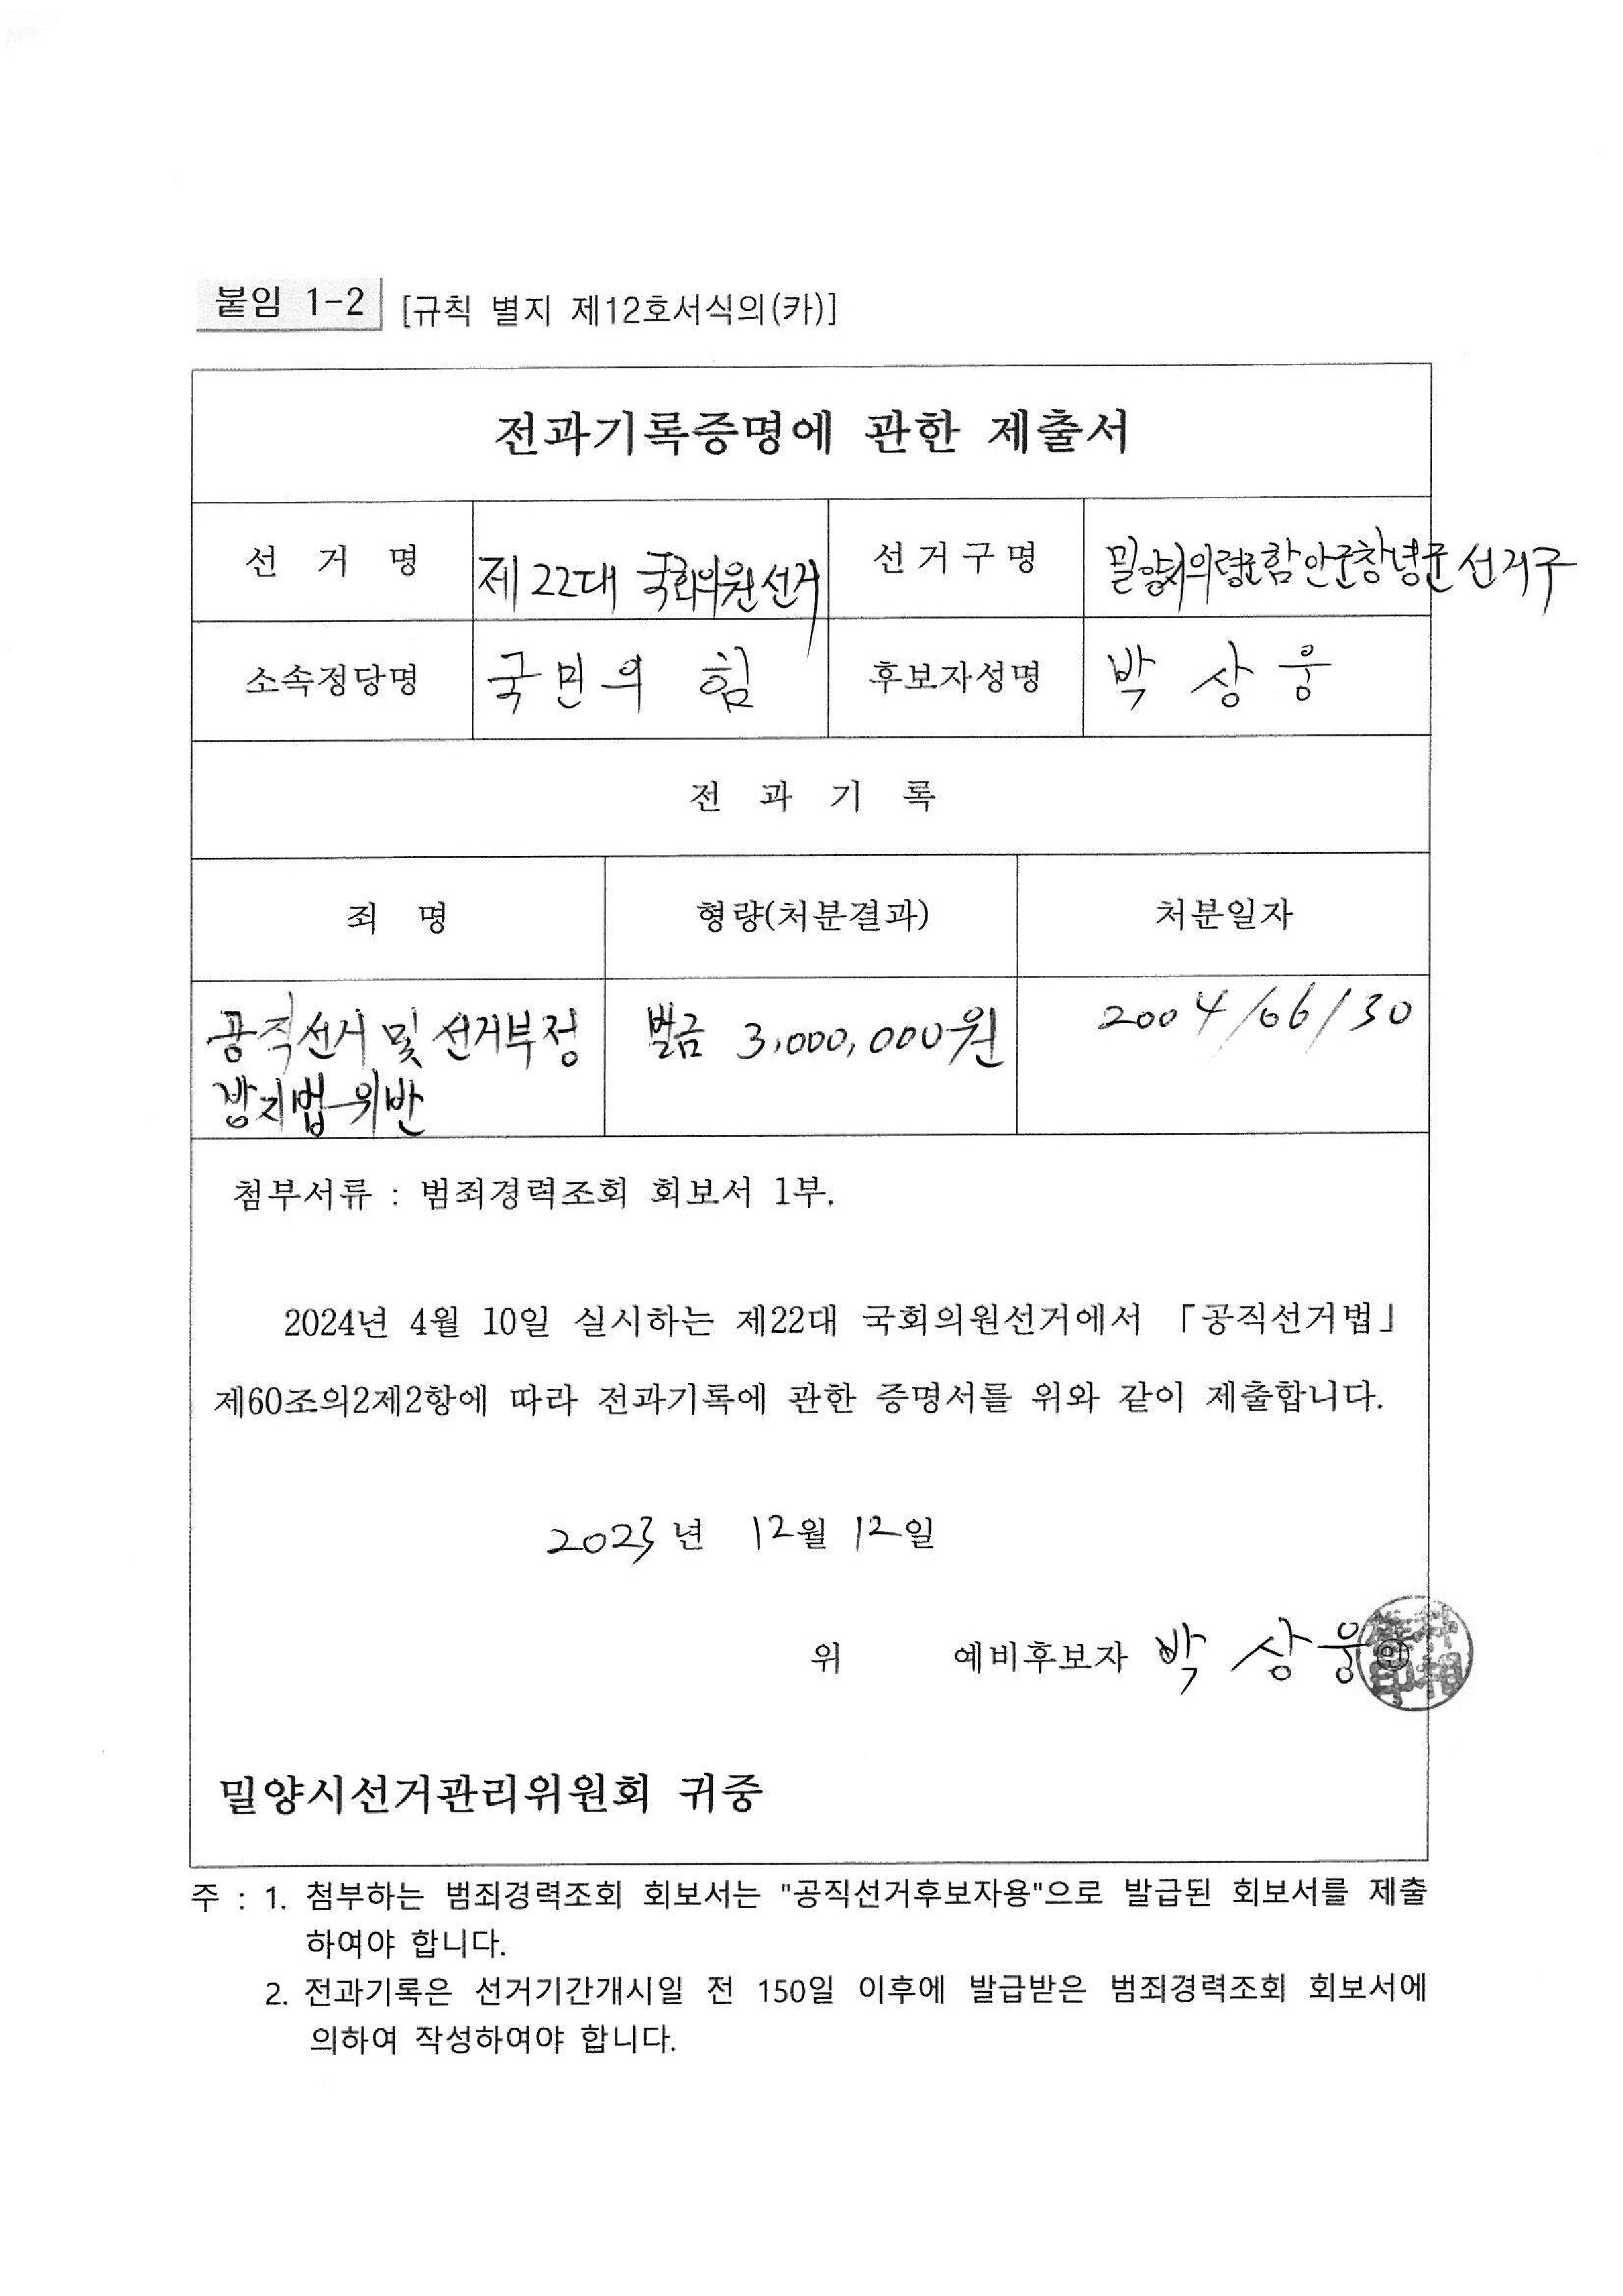 붙임 1-2 [규칙 별지 제12호서식의(카)]
전과기록증명에 관한 제출서
선 거 명 제22대 국회의원선거 선거구명 밀양시의령군함안군창녕군선거구
소속정당명 국민의 힘 후보자성명 박 상 웅
전 과 기 록
죄 명 형량(처분결과) 처분일자
공직선거 및 선거부정 벌금 3,000,000원 2004/06/30
방지법위반
첨부서류 : 범죄경력조회 회보서 1부.
2024년 4월 10일 실시하는 제22대 국회의원선거에서 「공직선거법」
제60조의2제2항에 따라 전과기록에 관한 증명서를 위와 같이 제출합니다.
2023년 12월 12일
위 예비후보자 박 상 웅 ㊞
밀양시선거관리위원회 귀중
주 : 1. 첨부하는 범죄경력조회 회보서는 "공직선거후보자용"으로 발급된 회보서를 제출
하여야 합니다.
2. 전과기록은 선거기간개시일 전 150일 이후에 발급받은 범죄경력조회 회보서에
의하여 작성하여야 합니다.